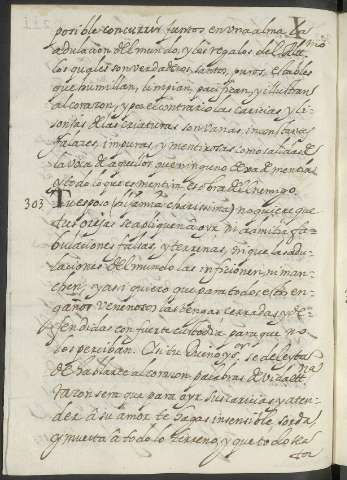 posible concurrir juntos en vna alma la
adulacion del mundo, y los regalos del Altissimo
los quales son verdaderos, santos, puros, estables
que humillan, limpian, pacifican, y illustran
al corazon, y por el contrario las caricias y li-
sonjas de las criaturas son vanas, inconstantes
falazes, impuras, y mentirosas como salidas de
la voca de aquellos que ninguno dexa de mentir
y todo lo que es mentira es obra del enemigo.
303 Tu esposo (hija mia charissima) no quiere que
tus orejas se apliquen a oyr ni admitir fa-
bulaciones falsas, y terrenas, ni que la adu-
laciones del mundo las inficionen, ni man-
chen, y asi quiero que para todos estos en-
gaños venenosos las tengas cerradas y de-
fendidas con fuerte custodia para que no
los perciban. Y si tu Dueño y Sr. se deleyta
de hablarte al corazon palabras de vida etna
razon sera que para oyr sus caricias y aten-
der a su amor te hagas insensible, sorda,
y muerta a todo lo terreno, y que todo sea
tor